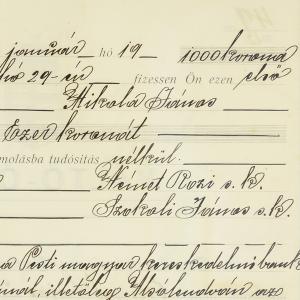 január hó 19 - 1000 korona
hó 29-én fizessen Ön ezen első
Mikola János
Ezer koronát
molásba tudósítás nélkül.
Német Rozi s.k.
Szokoli János s.k.
a Pesti magyar kereskedelmi bank
illetőleg Alsólendván az